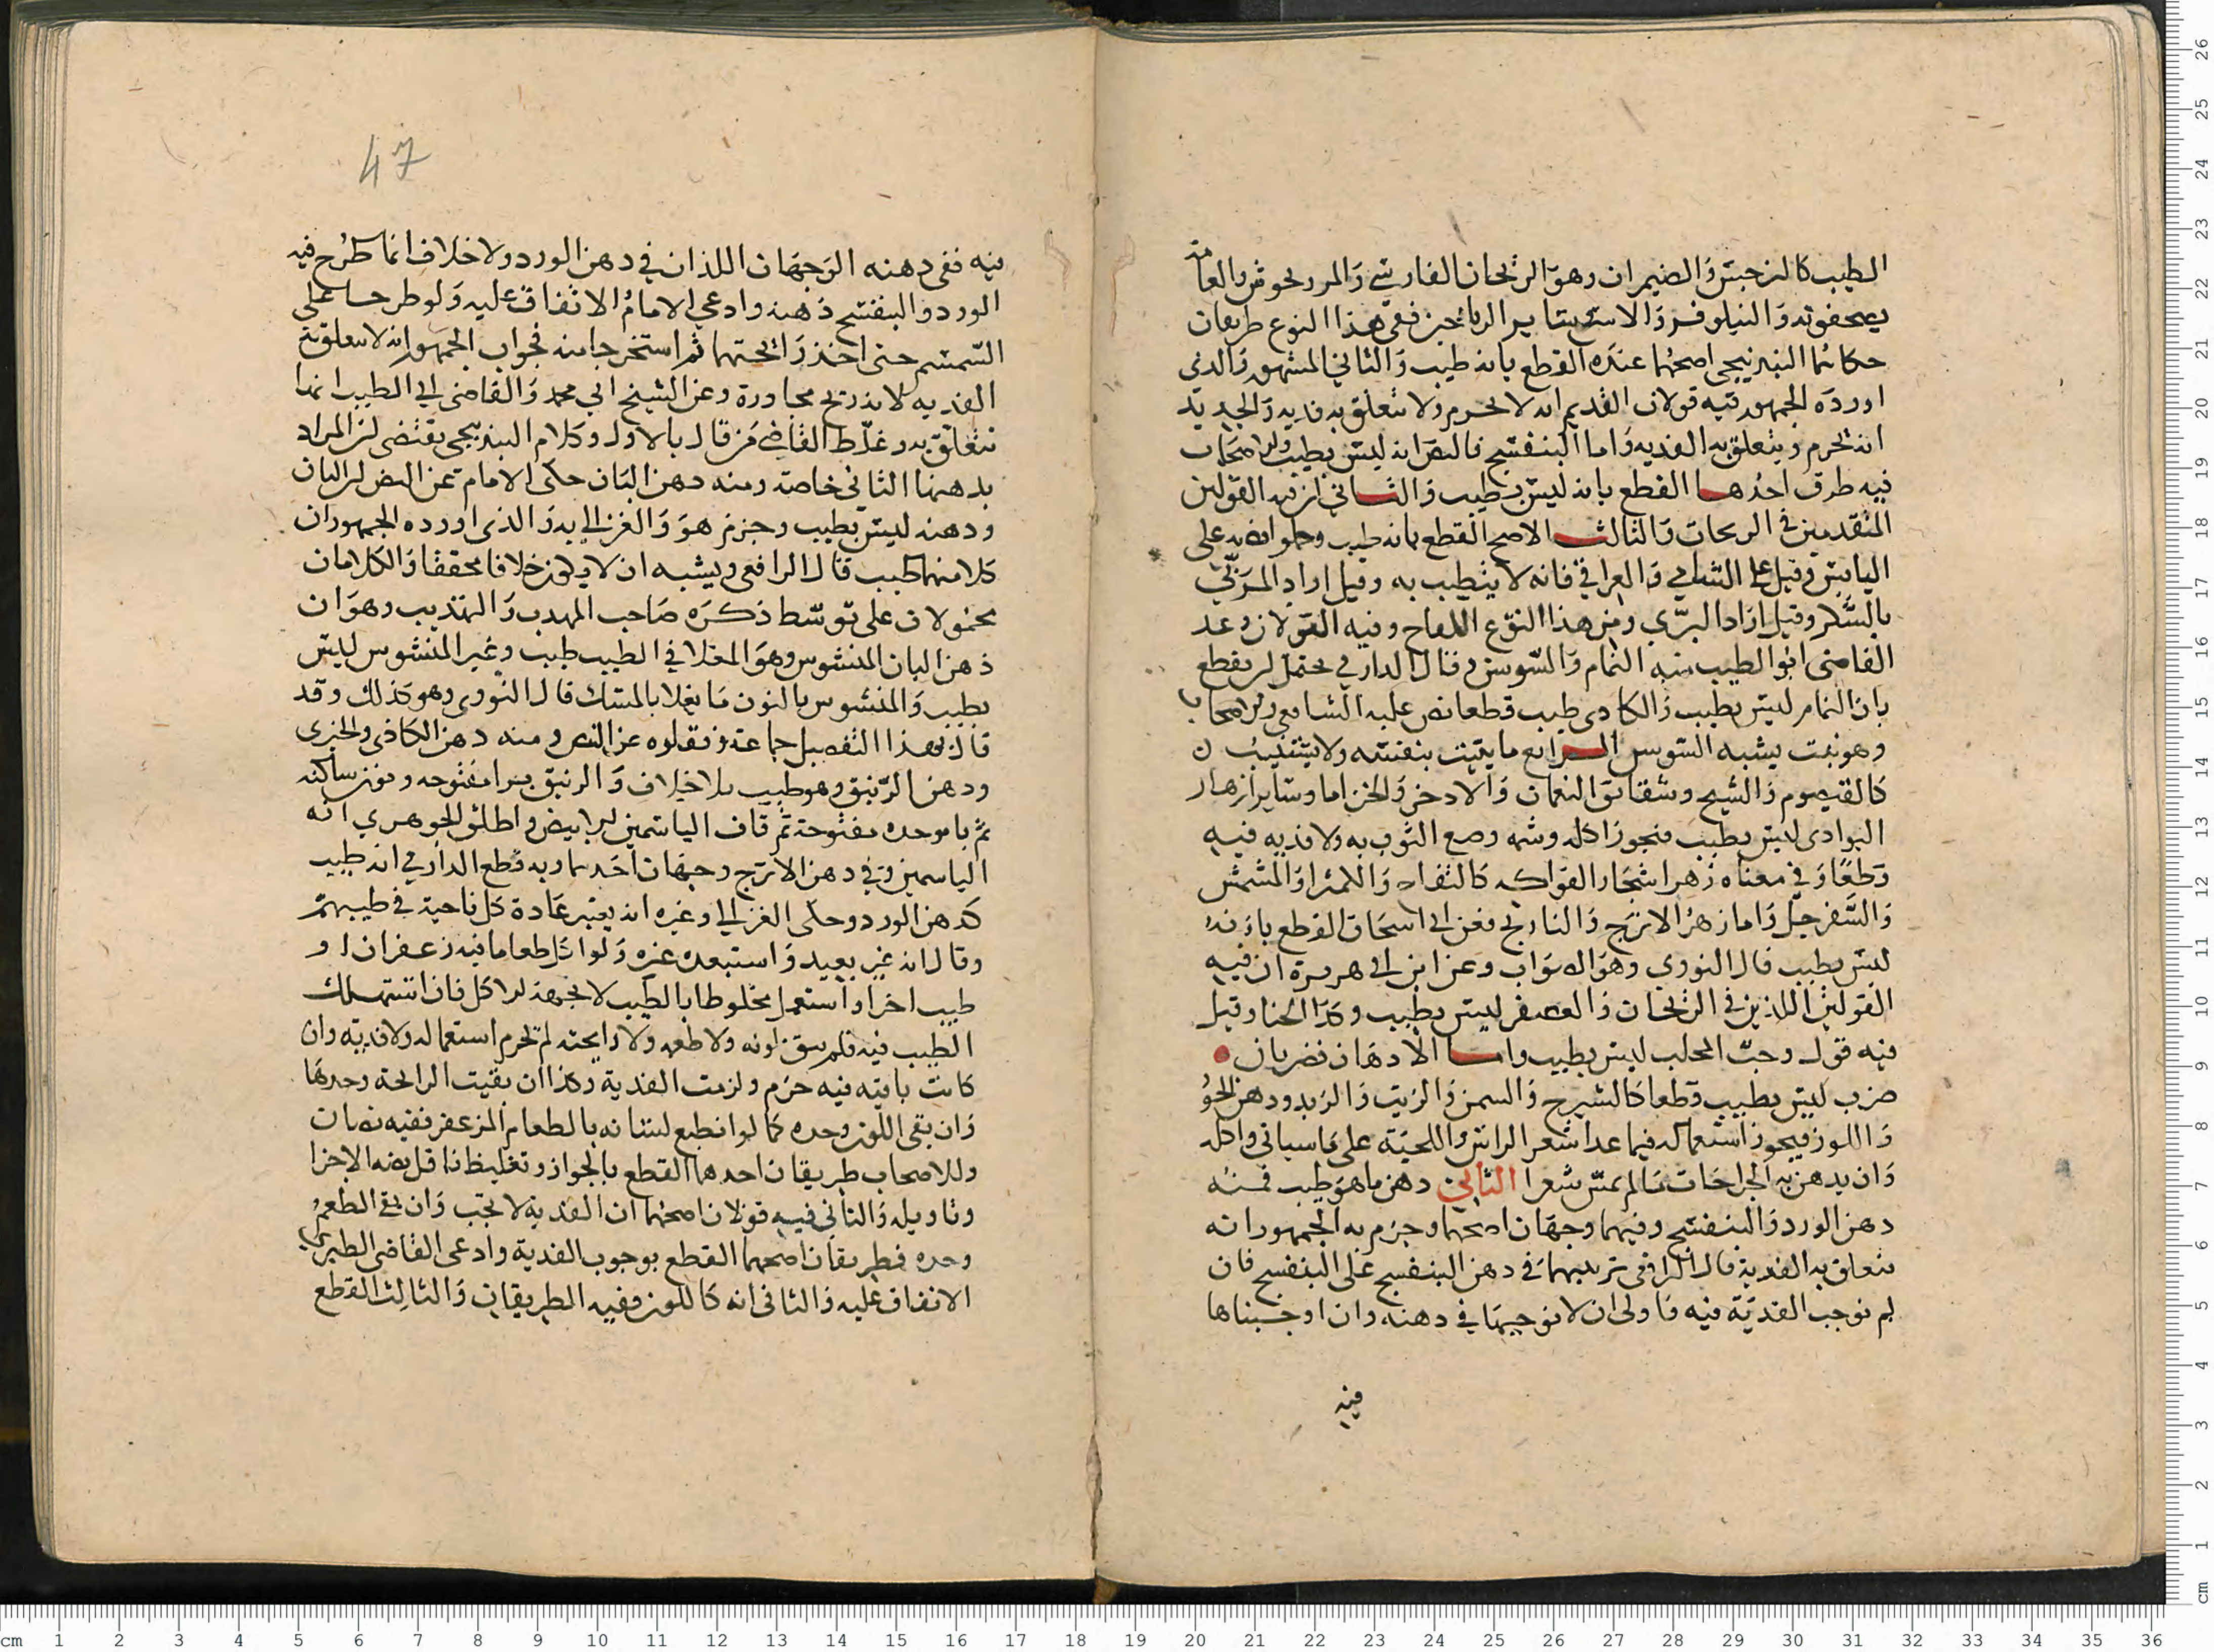 الطيب كالنرجس والضيمران وهو الريحان الفارسي والمرزنجوش والعامة
يصحفونه والنيلوفر والاس وسائر الرياحين ففي هذا النوع طريقان
حكاهما البندنيجي اصحهما عنده القطع بانه طيب والثاني المشهور والذي
اورده الجمهور فيه قولان القديم انه لا يحرم ولا تتعلق به فدية والجديد
انه يحرم ويتعلق به الفديه واما البنفسج فالنص انه ليس بطيب وللاصحاب
فيه طرق احدها القطع بانه ليس بطيب والثاني ان فيه القولين
المتقدمين في الريحان والثالث الاصح القطع بانه طيب وحملوا نصه على
اليابس وقيل على الشامي والعراقي فانه لا يتطيب به وقيل اراد المربي
بالسكر وقيل اراد البري ومن هذا النوع اللفاح وفيه القولان وعد
القاضي ابو الطيب منه النمام والسوسن وقال الدارمي يحتمل ان يقطع
بان النمام ليس بطيب والكاذي طيب قطعا نص عليه الشافعي والاصحاب
وهو نبت يشبه السوسن الرابع ما ينبت بنفسه ولا يستنبت
كالقيصوم والشيح وشقائق النعمان والاذخر والخزاما وساير ازهار
البوادي ليس بطيب فيجوز اكله وشمه وصبغ الثوب به ولا فديه فيه
قطعا وفي معناه زهر اشجار الفواكه كالتفاح والكمثرا والمشمش
والسفرجل واما زهر الاترج والنارنج فعن ابي اسحاق القطع بانه
ليس بطيب قال النووي وهو الصواب وعن ابن ابي هريرة ان فيه
القولين اللذين في الريحان والعصفر ليس بطيب وكذا الحنا وقيل
فيه قول وحب المحلب ليس بطيب واما الادهان فضربان
ضرب ليس بطيب قطعا كالشيرج والسمن والزيت والزبد ودهن الجوز
واللوز فيجوز استعماله فيما عدا شعر الراس واللحية على ما سياتي واكله
وان يدهن به الجراحات ما لم يمس شعرا الثاني دهن ما هو طيب فمنه
دهن الورد والبنفسج وفيهما وجهان اصحهما وجزم به الجمهور انه
تتعلق به الفدية قال الرافعي ترتيبهما في دهن البنفسج على البنفسج فان
لم نوجب الفدية فيه فاولى ان لا نوجبها في دهنه وان اوجبناها
فيه
47
فيه ففي دهنه الوجهان اللذان في دهن الورد ولا خلاف انما طرح فيه
الورد والبنفسج دهنه وادعي الامام الاتفاق عليه ولو طرحا على
السمسم حتى اخذ رائحتهما ثم استخرجا منه فجواب الجمهور انه لا يتعلق به
الفديه لانه ريح مجاورة وعن الشيخ ابي محمد والقاضي ابي الطيب انها
تتعلق به وغلط القاضي من قال بالاول وكلام البندنيجي يقتضي ان المراد
بدهنها الثاني خاصة ومنه دهن البان حكى الامام عن النص ان البان
ودهنه ليس بطيب وجزم هو والغزالي به والذي اورده الجمهور ان
كلا منهما طيب قال الرافعي ويشبه ان لا يكون خلافا محققا والكلامان
محمولان على توسط ذكره صاحب المهذب والتهذيب وهو ان
دهن البان المنشوش وهو المغلا في الطيب طيب وغير المنشوش ليس
بطيب والمنشوش بالنون ما يغلا بالمسك قال النووي وهو كذلك وقد
قال بهذا التفصيل جماعة ونقلوه عن النص ومنه دهن الكاذي والخيري
ودهن الزنبق وهو طيب بلا خلاف والزنبق بزا مفتوحه ونون ساكنه
ثم با موحده مفتوحة ثم قاف الياسمين الابيض واطلق الجوهري انه
الياسمين وفي دهن الاترج وجهان احدهما وبه قطع الدارمي انه طيب
كدهن الورد وحكى الغزالي وغيره انه يعتبر عادة كل ناحية في طيبهم
وقال انه غير بعيد واستبعده غيره ولو اكل طعاما فيه زعفران او
طيب اخر او استعمل مخلوطا بالطيب لا لجهة الاكل فان استهلك
الطيب فيه فلم يبق لونه ولا طعمه ولا رايحته لم يحرم استعماله ولا فدية وان
كانت باقيه فيه حرم ولزمت الفدية وكذا ان بقيت الرائحة وحدها
وان بقي اللون وحده كما لو انطبع لسانه بالطعام المزعفر ففيه نصان
وللاصحاب طريقان احدهما القطع بالجواز وتغليظ ناقل نصه الاجزا
وتاويله والثاني فيه قولان اصحهما ان الفدية لا تجب وان بقي الطعم
وحده فطريقان اصحهما القطع بوجوب الفدية وادعى القاضي الطبري
الاتفاق عليه والثاني انه كاللون وفيه الطريقان والثالث القطع